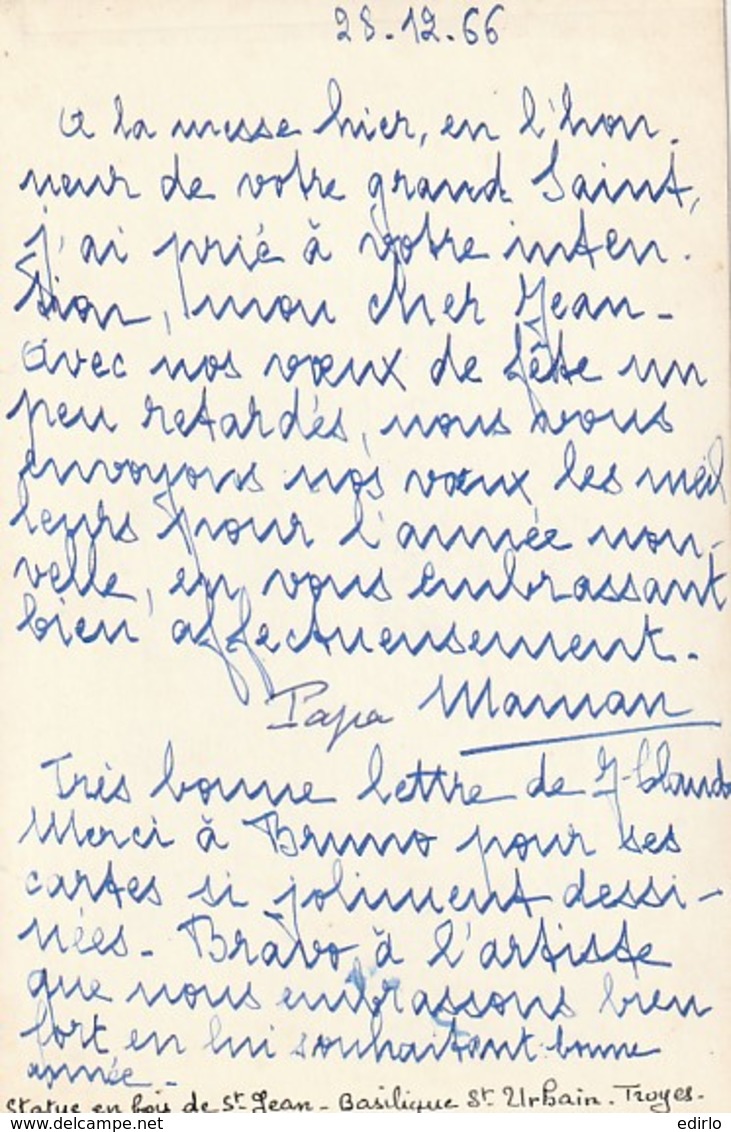 28.12.66
A la messe hier, en l'hon-
neur de votre grand Saint,
j'ai prié à votre inten-
tion, mon cher Jean-
Avec nos vœux de fête un
peu retardés, nous vous
envoyons nos vœux les meil
leurs pour l'année nou-
velle, en vous embrassant
bien affectueusement.
Papa Maman
Très bonne lettre de J-Claude
Merci à Bruno pour ses
cartes si joliment dessi-
nées. Bravo à l'artiste
que nous embrassons bien
fort en lui souhaitant bonne
année.
Statue en bois de St Jean - Basilique St Urbain. Troyes.
delcampe.net
edirlo